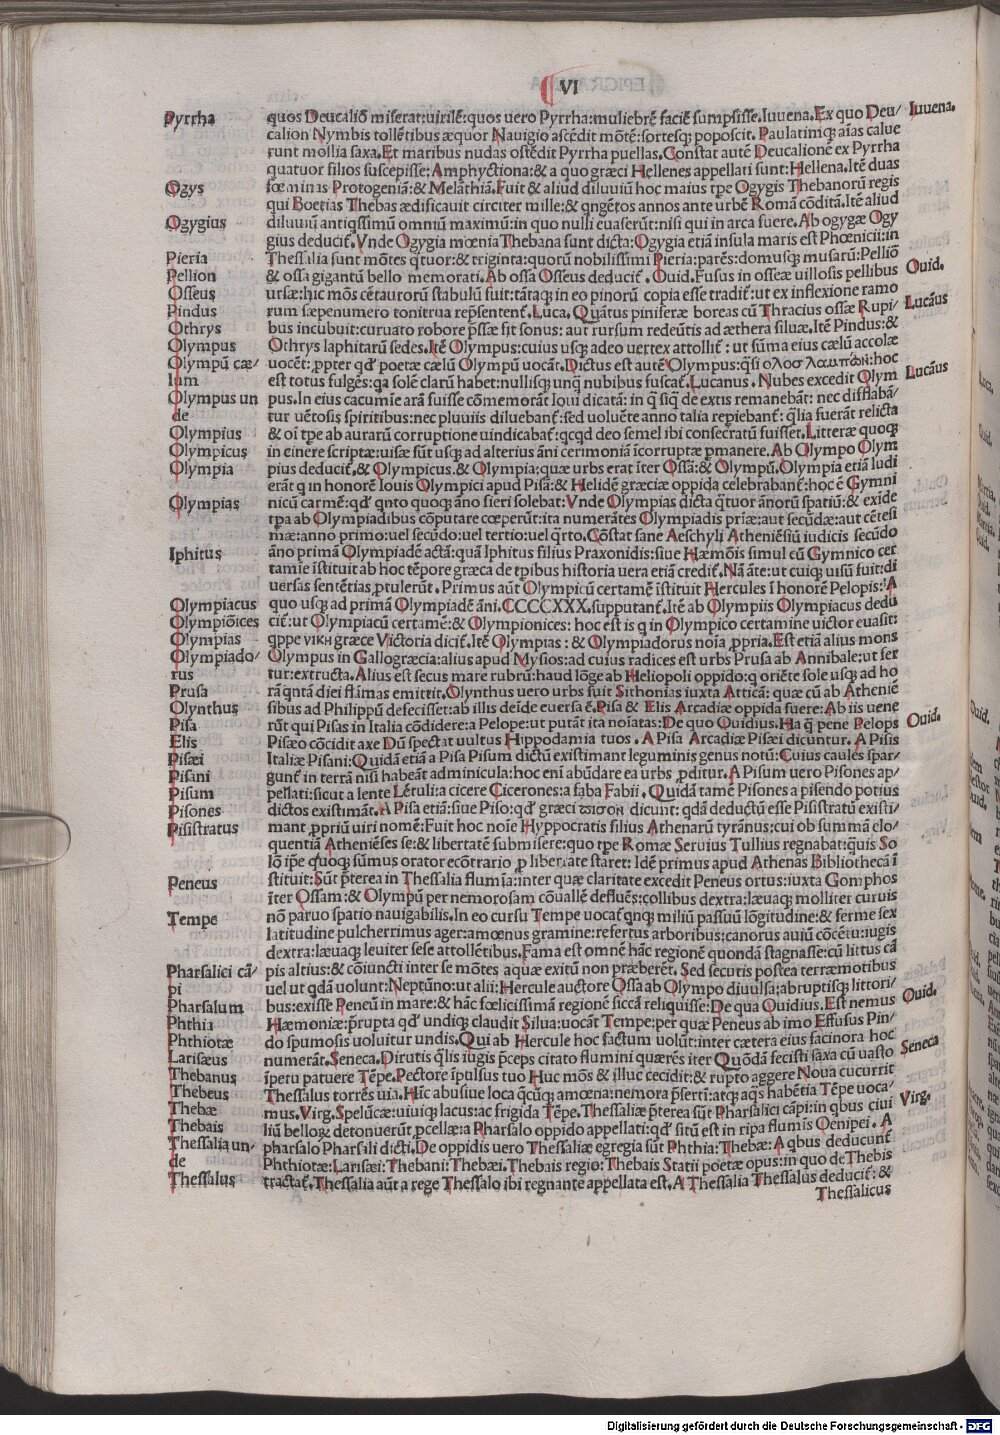 VI
Pyrrha quos Deucaliō miserat:uirilē:quos uero Pyrrha:muliebrē faciē sumpsisse.Iuuena.Ex quo Deu/ Iuuena.
calion Nymbis tollētibus æquor Nauigio ascēdit mōtē:sortesq; poposcit.Paulatimq; aīas calue
runt mollia saxa.Et maribus nudas ostēdit Pyrrha puellas.Constat autē Deucalionē ex Pyrrha
quatuor filios suscepisse:Amphyctiona:& a quo græci Hellenes appellati sunt:Hellena.Itē duas
Ogys fœminas Protogeniā:& Melāthiā.Fuit & aliud diluuiū hoc maius tpe Ogygis Thebanorū regis
qui Boetias Thebas ædificauit circiter mille:& qngētos annos ante urbē Romā cōditā.Itē aliud
Ogygius diluuiū antiqssimū omniū maximū:in quo nulli euaserūt:nisi qui in arca fuere.Ab ogygæ Ogy
gius deducit̄.Vnde Ogygia mœnia Thebana sunt dicta:Ogygia etiā insula maris est Phœnicii:in
Pieria Thessalia sunt mōtes q̄tuor:& triginta:quorū nobilissimi Pieria:parēs:domusq; musarū:Pelliō
Pellion & ossa gigantū bello memorati.Ab ossa Osseus deducit̄.Ouid.Fusus in osseæ uillosis pellibus Ouid.
Osseus ursæ:hic mōs cētaurorū stabulū fuit:tātaq; in eo pinorū copia esse tradit̄:ut ex inflexione ramo
Pindus rum sæpenumero tonitrua rep̄sentent̄.Luca.Quātus piniferæ boreas cū Thracius ossæ Rupi/ Lucāus
Othrys bus incubuit:curuato robore p̄ssæ fit sonus: aut rursum redeūtis ad æthera siluæ.Itē Pindus:&
Olympus Othrys laphitarū sedes.Itē Olympus:cuius usq; adeo uertex attollit̄: ut sūma eius cælū accolæ
Olympū cæ/ uocēt:ꝓpter qđ poetæ cælū Olympū uocāt.Dictus est autē Olympus:q̄si ολοσ λαμπων:hoc
lum est totus fulgēs:qa solē clarū habet:nullisq; unq̄ nubibus fuscat̄.Lucanus.Nubes excedit Olym Lucāus
Olympus un pus.In eius cacumīe arā fuisse cōmemorāt Ioui dicatā: in q̄ siq̄ de extis remanebāt: nec difflabā/
de tur uētosis spiritibus:nec pluuiis diluebant̄:sed uoluēte anno talia repiebant̄: q̄lia fuerāt relicta
Olympius & oī tpe ab aurarū corruptione uindicabat̄:qcqd deo semel ibi consecratū fuisset.Litteræ quoq;
Olympicus in cinere scriptæ:uisæ sūt usq; ad alterius āni cerimoniā īcorruptæ ꝑmanere.Ab Olympo Olym
Olympia pius deducit̄.& Olympicus.& Olympia:quæ urbs erat īter Ossā:& Olympū.Olympia etiā ludi
erāt q in honorē Iouis Olympici apud Pisā:& Helidē græciæ oppida celebrabant̄:hoc ē Gymni
Olympias nicū carmē:qđ qnto quoq; āno fieri solebat:Vnde Olympias dicta q̄tuor ānorū spatiū:& exīde
tpa ab Olympiadibus cōputare cœperūt:ita numerātes Olympiadis prīæ:aut secūdæ:aut cētesi
mæ:anno primo:uel secūdo:uel tertio:uel q̄rto.Cōstat sane Aeschyli Atheniēsiū iudicis secūdo
Iphitus āno primā Olympiadē actā:quā Iphitus filius Praxonidis:siue Hæmōis simul cū Gymnico cer
tamie īstituit ab hoc tēpore græca de tpibus historia uera etiā credit̄.Nā āte:ut cuiq; uisū fuit:di
uersas sentētias ꝓtulerūt.Primus aūt Olympicū certamē īstituit Hercules ī honorē Pelopis:A
Olympiacus quo usq; ad primā Olympiadē āni.CCCCXXX.supputant̄.Itē ab Olympiis Olympiacus dedu
Olympiōices cit̄:ut Olympiacū certamē:& Olympionices: hoc est is q in Olympico certamine uictor euasit:
Olympias qppe νικη græce Victoria dicit̄.Itē Olympias:& Olympiadorus noīa ꝓpria.Est etiā alius mons
Olympiado/ Olympus in Gallogræcia:alius apud Mysios:ad cuius radices est urbs Prusa ab Annibale:ut fer
rus tur:extructa.Alius est secus mare rubrū:haud lōge ab Heliopoli oppido:q oriēte sole usq; ad ho
Prusa rā qntā diei flāmas emittit.Olynthus uero urbs fuit Sithonias iuxta Atticā: quæ cū ab Atheniē
Olynthus sibus ad Philippū defecisset:ab illis deīde euersa ē.Pisa & Elis Arcadiæ oppida fuere:Ab iis uene
Pisa rūt qui Pisas in Italia cōdidere:a Pelope:ut putāt ita noīatas:De quo Ouidius.Ha q̄ pene Pelops Ouid.
Elis Pisæo cōcidit axe Dū spectat uultus Hippodamia tuos.A Pisa Arcadiæ Pisæi dicuntur.A Pisis
Pisæi Italiæ Pisani:Quidā etiā a Pisa Pisum dictū existimant leguminis genus notū:Cuius caules spar/
Pisani gunt̄ in terrā nisi habeāt adminicula:hoc enī abūdare ea urbs ꝓditur.A Pisum uero Pisones ap/
Pisum pellati:sicut a lente Lētuli:a cicere Cicerones:a faba Fabii.Quidā tamē Pisones a pisendo potius
Pisones dictos existimāt.A Pisa etiā:siue Piso:qđ græci πισον dicunt:qdā deductū esse Pisistratū existi/
Pisistratus mant ꝓpriū uiri nomē:Fuit hoc noīe Hyppocratis filius Athenarū tyrānus:cui ob summā elo/
quentiā Atheniēses se:& libertatē submisere:quo tpe Romæ Seruius Tullius regnabat:q̄uis So
lō īp̄e quoq; sūmus orator ecōtrario ꝓ libertate staret: Idē primus apud Athenas Bibliothecā ī
Peneus stituit:Sūt p̄terea in Thessalia flumīa:inter quæ claritate excedit Peneus ortus:iuxta Gomphos
īter Ossam:& Olympū per nemorosam cōuallē defluēs:collibus dextra:læuaq; molliter curuis
Tempe nō paruo spatio nauigabilis.In eo cursu Tempe uocat̄ qnq; miliū passuū lōgitudine:& ferme sex
latitudine pulcherrimus ager:amœnus gramine:refertus arboribus:canorus auiū cōcētu:iugis
dextra:læuaq; leuiter sese attollētibus.Fama est omnē hāc regionē quondā stagnasse:cū littus cā
Pharsalici cā/ pis altius:& cōiuncti inter se mōtes aquæ exitū non præberēt.Sed secutis postea terræmotibus
pi uel ut qdā uolunt:Neptūno:ut alii:Hercule auctore Ossa ab Olympo diuulsa:abruptisq; littori/
Pharsalum bus:exisse Peneū in mare:& hāc fœlicissimā regionē siccā reliquisse:De qua Ouidius.Est nemus Ouid.
Phthia Hæmoniæ:p̄rupta qđ undiq; claudit Silua:uocāt Tempe:per quæ Peneus ab imo Effusus Pin/
Phthiotæ do spumosis uoluitur undis.Qui ab Hercule hoc factum uolūt:inter cætera eius facinora hoc
Larisæus numerāt.Seneca.Dirutis q̄lis iugis p̄ceps citato flumini quærēs iter Quōdā fecisti saxa cū uasto Seneca
Thebanus īperu patuere Tēpe.Pectore īpulsus tuo Huc mōs & illuc cecidit:& rupto aggere Noua cucurrit
Thebeus Thessalus torrēs uia.Hīc abusiue loca qcūq; amœna:nemora p̄serti:atq; aq̄s habētia Tēpe uoca/
Thebæ mus.Virg.Spelūcæ:uiuiq; lacus:ac frigida Tēpe.Thessaliæ p̄terea sūt Pharsalici cāpi:in qbus ciui Virg.
Thebais liū belloꝝ detonuerūt ꝓcellæ:a Pharsalo oppido appellati:qđ sitū est in ripa flumīs Oenipei.A
Thessalia un/ pharsalo Pharsali dicti.De oppidis uero Thessaliæ egregia sūt Phthia:Thebæ:A qbus deducunt̄
de Phthiotæ:Larisæi:Thebani:Thebæi.Thebais regio:Thebais Statii poetæ opus:in quo de Thebis
Thessalus tractat̄.Thessalia aūt a rege Thessalo ibi regnante appellata est.A Thessalia Thessalus deducit̄:&
Thessalicus
Digitalisierung gefördert durch die Deutsche Forschungsgemeinschaft - DFG